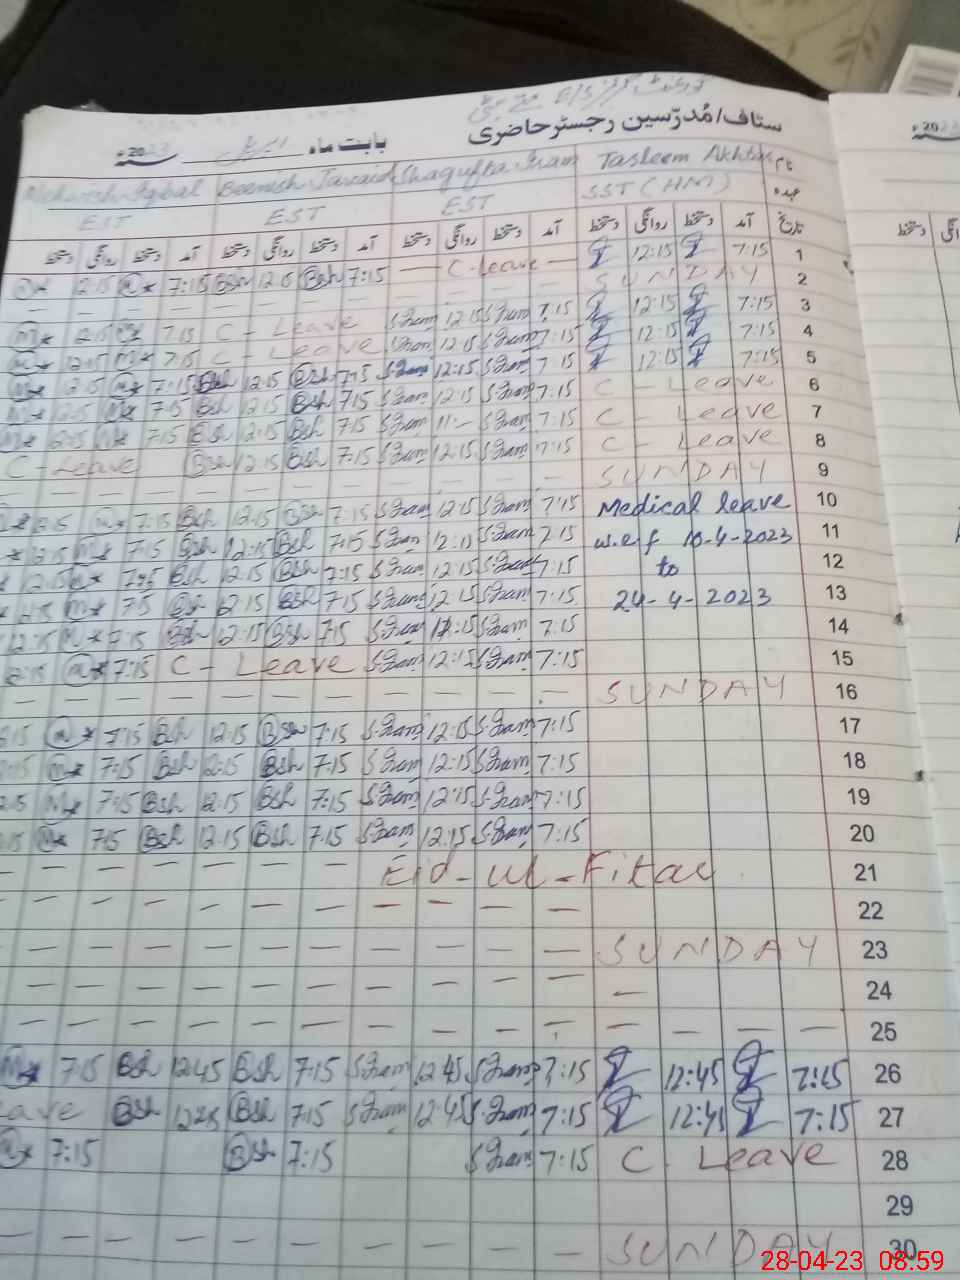 گورنمنٹ گرلز E/S
ستاف/مُدرّسین رجسٹر حاضری
بابت ماہ اپریل 2023ء
نام Tasleem Akhtar Shagufta Iram Beenish Javaid Mehwish Iqbal
عہدہ SST (HM) EST EST EST
تاریخ آمد دستخط روانگی دستخط آمد دستخط روانگی دستخط آمد دستخط روانگی دستخط آمد دستخط روانگی دستخط
12:15 7:15 Bsh 12:15 Bsh 7:15 — C-Leave — 12:15 7:15 1
SUNDAY 2
12:15 7:15 C - Leave S.Iram 12:15 S.Iram 7:15 12:15 7:15 3
12:15 7:15 C - Leave S.Iram 12:15 S.Iram 7:15 12:15 7:15 4
12:15 7:15 Bsh 12:15 Bsh 7:15 S.Iram 12:15 S.Iram 7:15 12:15 7:15 5
12:15 7:15 Bsh 12:15 Bsh 7:15 S.Iram 12:15 S.Iram 7:15 C - Leave 6
12:15 7:15 Bsh 12:15 Bsh 7:15 S.Iram 11:- S.Iram 7:15 C - Leave 7
C - Leave Bsh 12:15 Bsh 7:15 S.Iram 12:15 S.Iram 7:15 C - Leave 8
SUNDAY 9
12:15 7:15 Bsh 12:15 Bsh 7:15 S.Iram 12:15 S.Iram 7:15 Medical leave 10
12:15 7:15 Bsh 12:15 Bsh 7:15 S.Iram 12:15 S.Iram 7:15 w.e.f 10-4-2023 11
12:15 7:15 Bsh 12:15 Bsh 7:15 S.Iram 12:15 S.Iram 7:15 to 12
12:15 7:15 Bsh 12:15 Bsh 7:15 S.Iram 12:15 S.Iram 7:15 24-4-2023 13
12:15 7:15 Bsh 12:15 Bsh 7:15 S.Iram 12:15 S.Iram 7:15 14
12:15 7:15 C - Leave S.Iram 12:15 S.Iram 7:15 15
SUNDAY 16
7:15 Bsh 12:15 Bsh 7:15 S.Iram 12:15 S.Iram 7:15 17
7:15 Bsh 12:15 Bsh 7:15 S.Iram 12:15 S.Iram 7:15 18
7:15 Bsh 12:15 Bsh 7:15 S.Iram 12:15 S.Iram 7:15 19
7:15 Bsh 12:15 Bsh 7:15 S.Iram 12:15 S.Iram 7:15 20
Eid-ul-Fitar 21
22
SUNDAY 23
24
25
7:15 Bsh 12:45 Bsh 7:15 S.Iram 12:45 S.Iram 7:15 12:45 7:15 26
Leave Bsh 12:45 Bsh 7:15 S.Iram 12:45 S.Iram 7:15 12:45 7:15 27
7:15 Bsh 7:15 S.Iram 7:15 C. Leave 28
29
SUNDAY 30
28-04-23 08:59